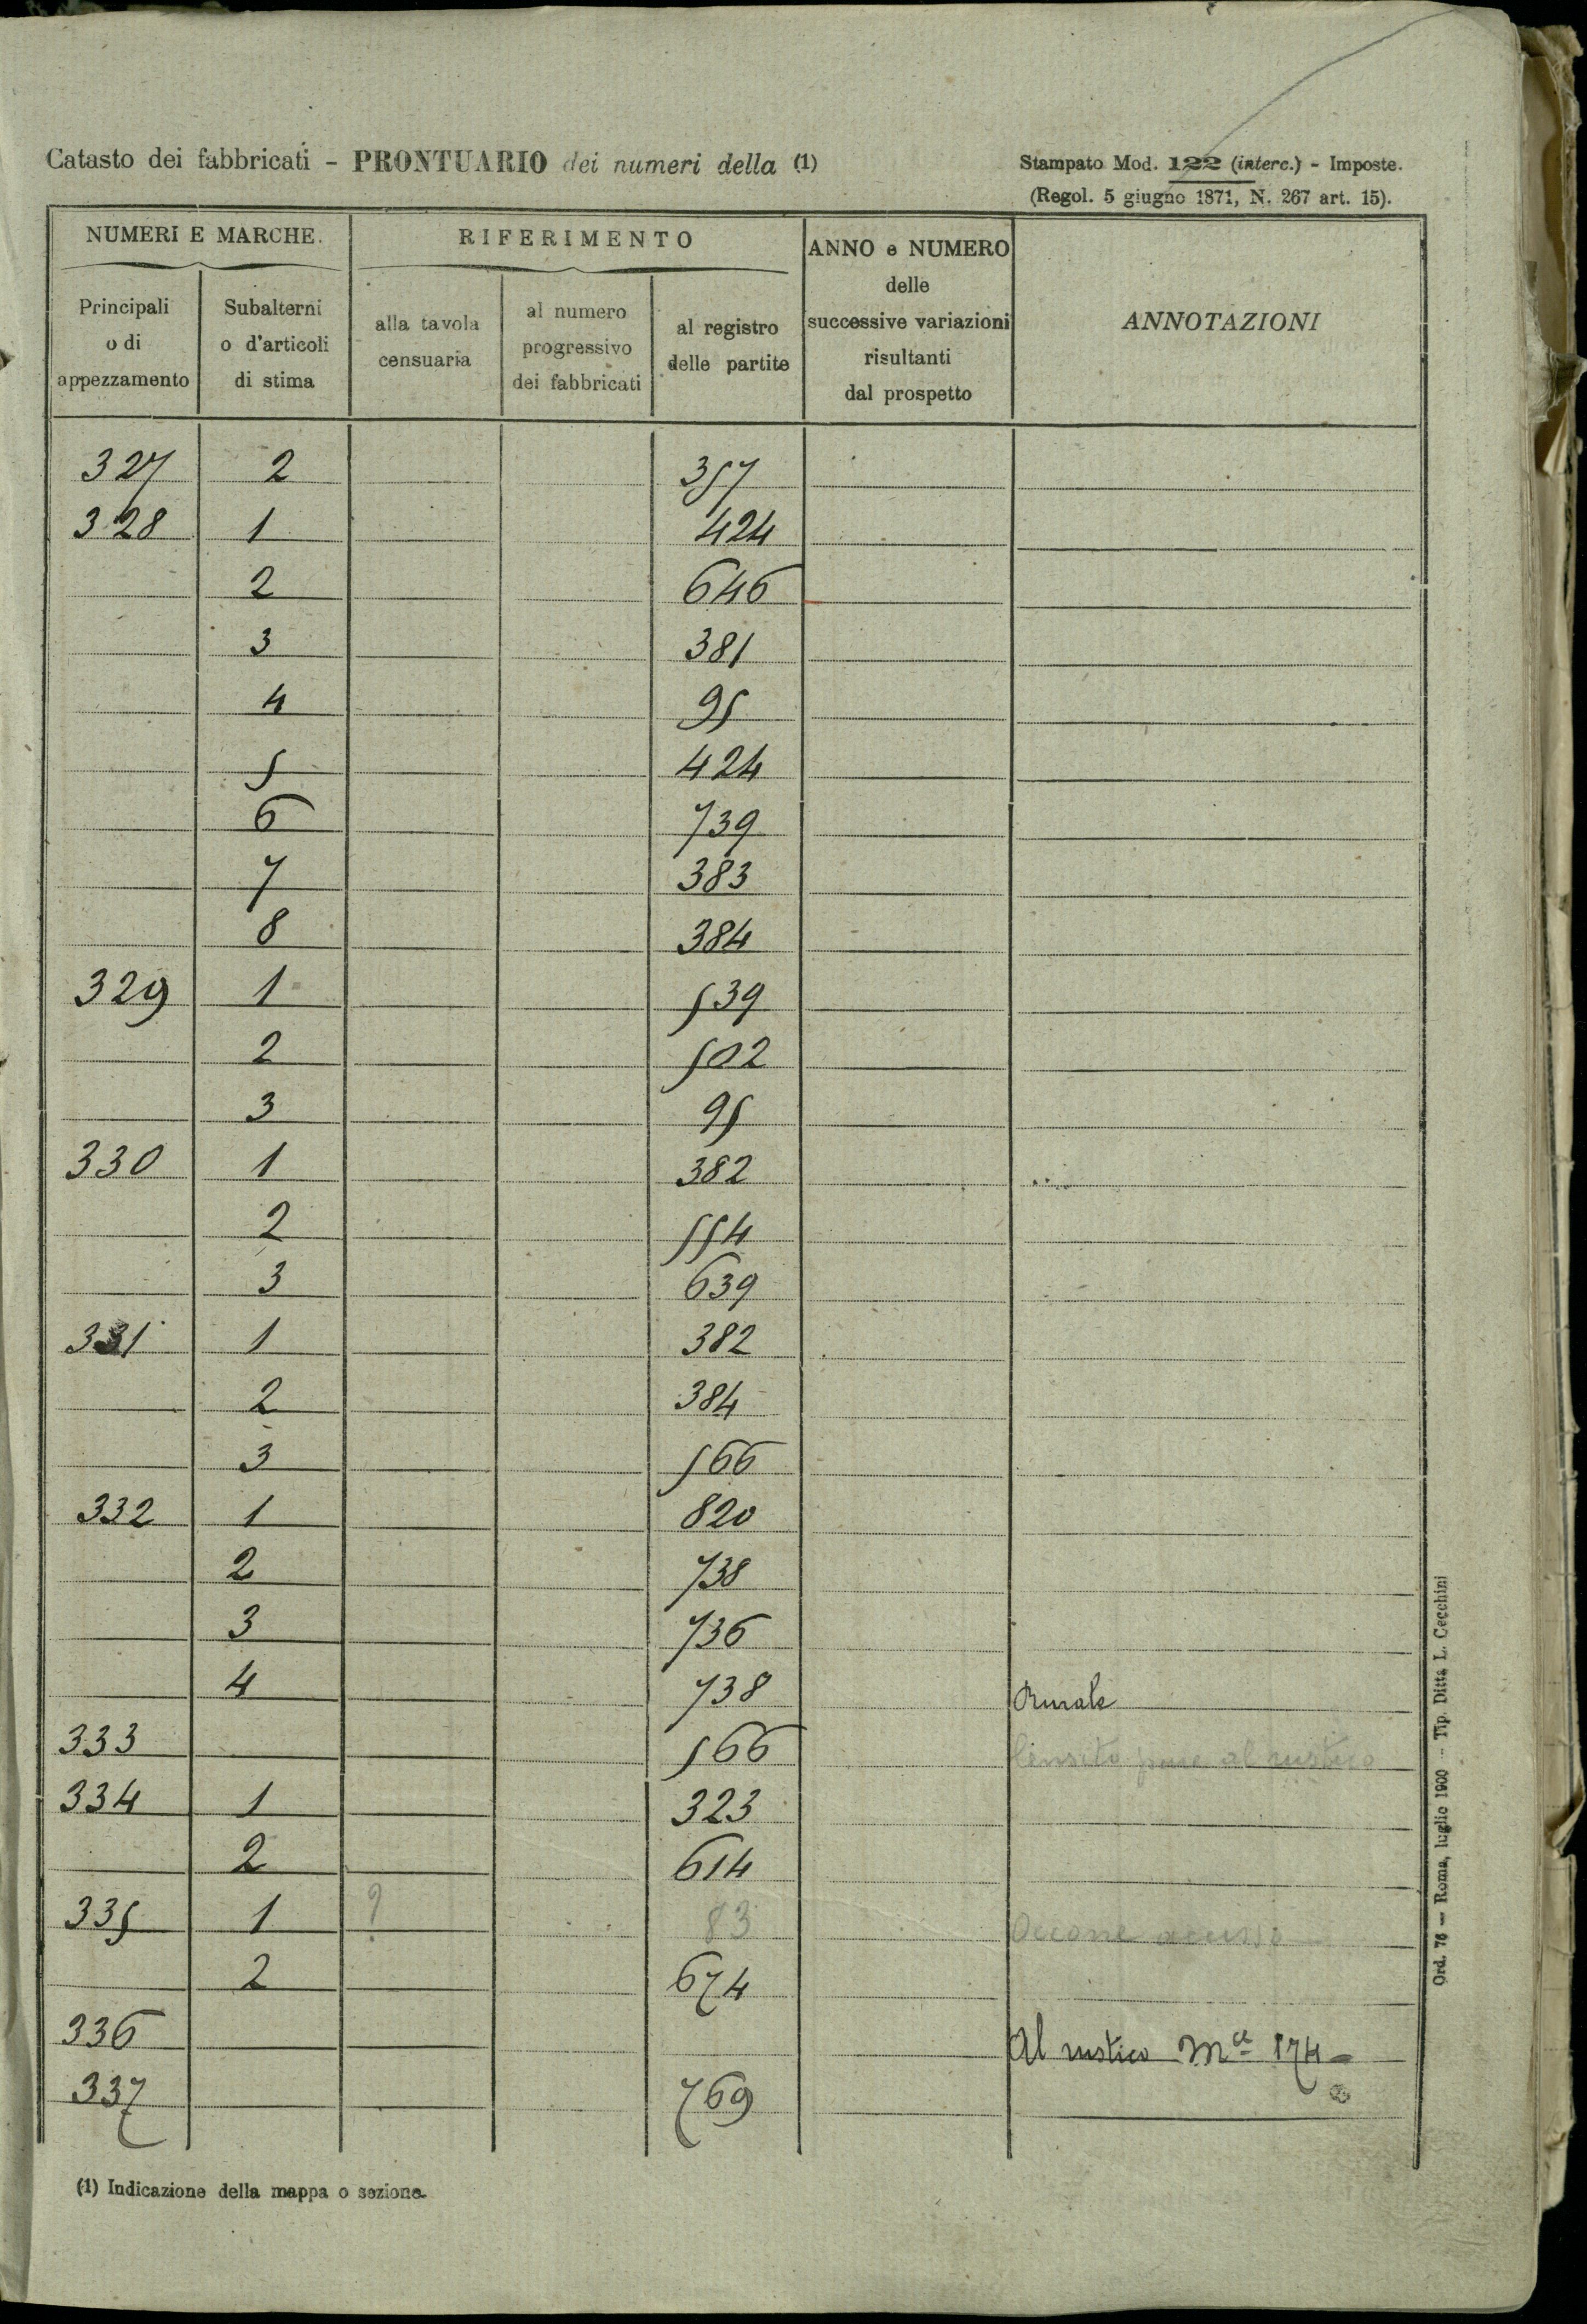 Catasto dei fabbricati - PRONTUARIO dei numeri della (1)
Stampato Mod. 122 (interc.) - Imposte.
(Regol. 5 giugno 1871, N. 267 art. 15).
NUMERI E MARCHE.
RIFERIMENTO
ANNO e NUMERO
delle
successive variazioni
risultanti
dal prospetto
ANNOTAZIONI
Principali
o di
appezzamento
Subalterni
o d'articoli
di stima
alla tavola
censuaria
al numero
progressivo
dei fabbricati
al registro
delle partite
327 2 357
328 1 424
2 646
3 381
4 95
5 424
6 739
7 383
8 384
329 1 539
2 502
3 95
330 1 382
2 554
3 639
331 1 382
2 384
3 566
332 1 820
2 738
3 736
4 738 Rurale
333 566 Censito pure al rustico
334 1 323
2 614
335 1 ? 83 Occorre
2 674
336 Al rustico Mcl 174
337 769
(1) Indicazione della mappa o sezione.
Ord. 76 — Roma, luglio 1900 - Tip. Ditta L. Cecchini